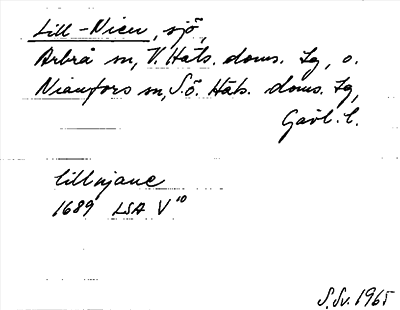 Lill-Nien, sjö,
Arbrå sn, V. Häls. doms. tg, o.
Nianfors sn, S.ö. Häls. doms. tg,
Gävl. l.
lillnjane
1689 LSA V 10
S.Sv. 1965